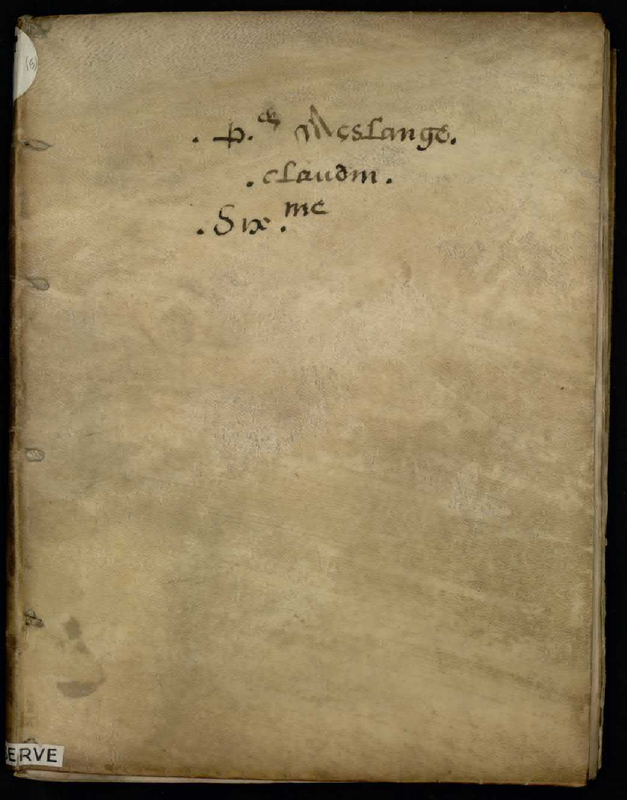 . p. Meslange.
. claudin .
. Six .me
ERVE